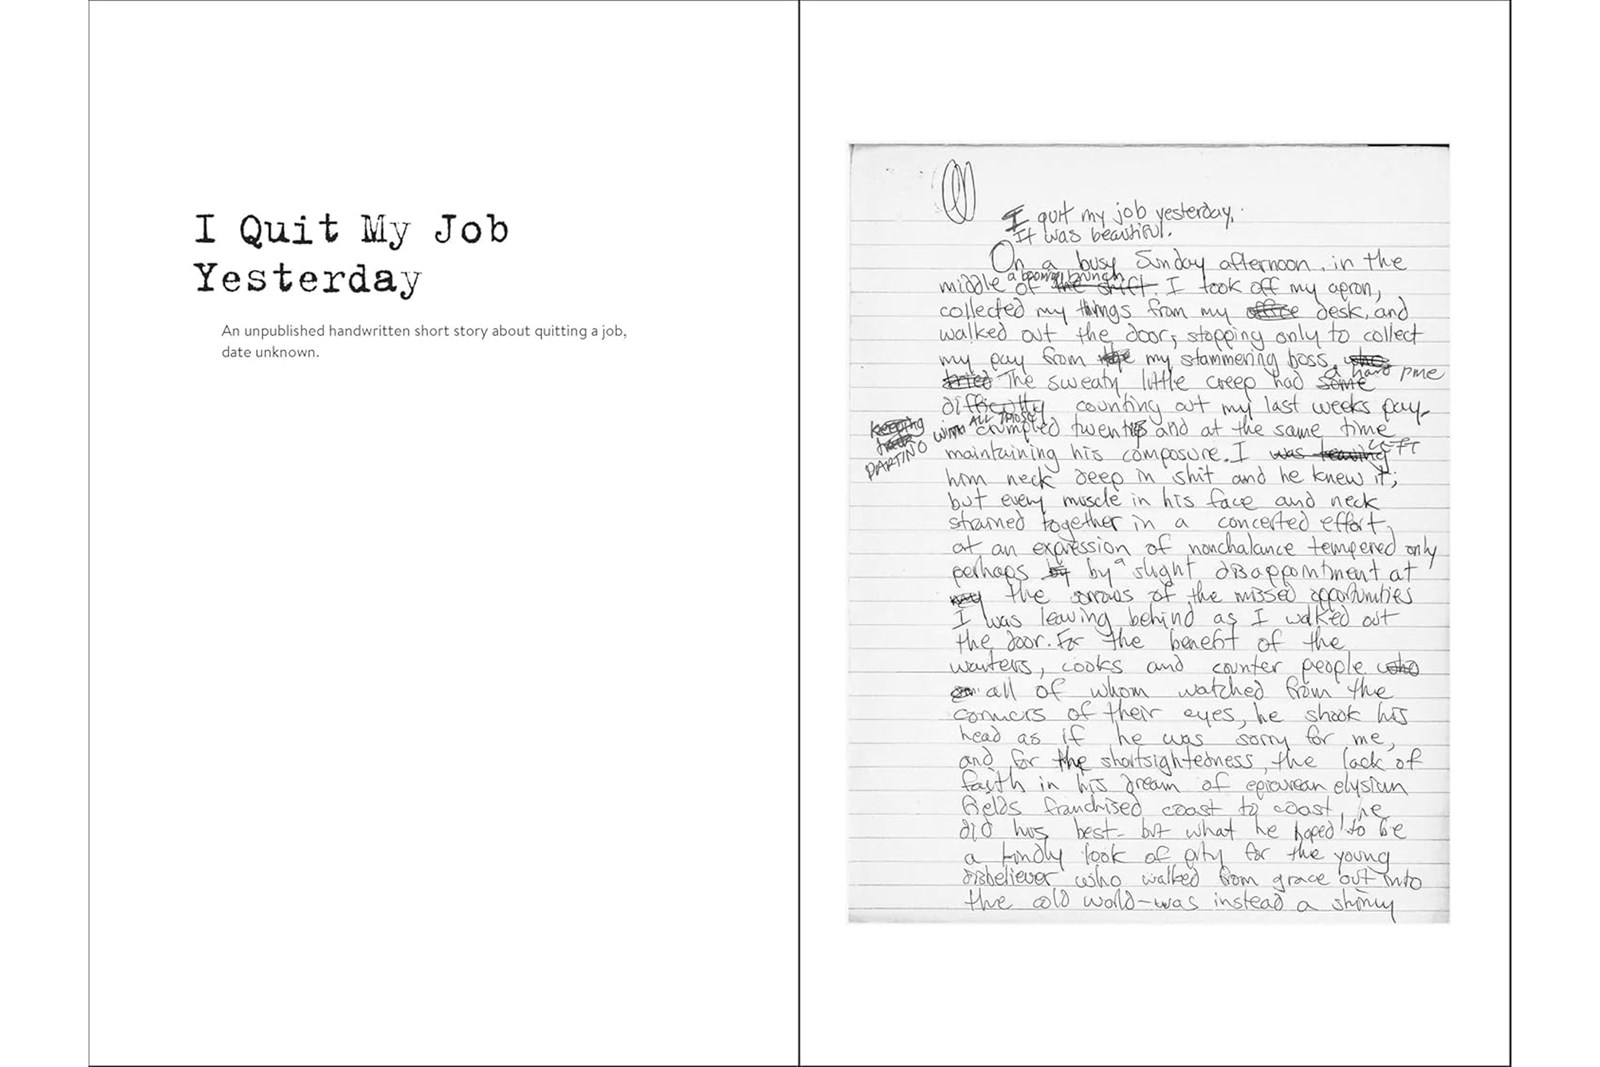 I Quit My Job
Yesterday
An unpublished handwritten short story about quitting a job,
date unknown.
I quit my job yesterday.
It was beautiful.
On a busy Sunday afternoon, in the
a booming brunch
middle of the shift. I took off my apron,
collected my things from my office desk, and
walked out the door, stopping only to collect
my pay from my stammering boss, who
tried The sweaty little creep had some a hard time
difficulty counting out my last weeks pay.
keeping
PARTING
with ALL THOSE crumpled twenties and at the same time
maintaining his composure. I was leaving LEFT
him neck deep in shit and he knew it;
but every muscle in his face and neck
strained together in a concerted effort,
at an expression of nonchalance tempered only
perhaps by by a slight disappointment at
the sorrows of the missed opportunities
I was leaving behind as I walked out
the door. For the benefit of the
waiters, cooks and counter people who
all of whom watched from the
corners of their eyes, he shook his
head as if he was sorry for me,
and for the shortsightedness, the lack of
faith in his dream of epicurean elysian
fields franchised coast to coast, he
did his best- but what he hoped to be
a kindly look of pity for the young
disbeliever who walked from grace out into
the cold world-was instead a shiny